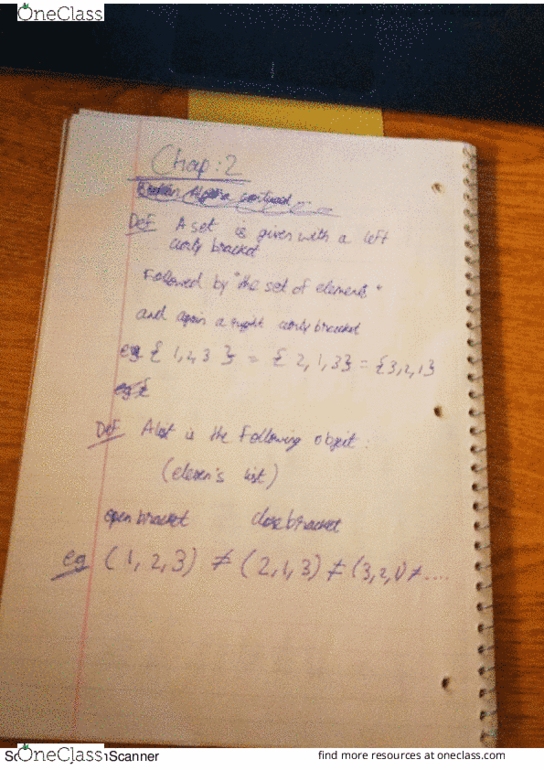 OneClass
Chap: 2
Boolean Algebra continued...
Def A set is given with a left
curly bracket
Followed by "the set of elements"
and again a right curly bracket
eg { 1, 2, 3 } = { 2, 1, 3} = {3, 2, 1}
eg {
Def A list is the following object:
( list)
open bracket close bracket
eg (1, 2, 3) ≠ (2, 1, 3) ≠ (3, 2, 1) ≠ ....
OneClass Scanner
find more resources at oneclass.com